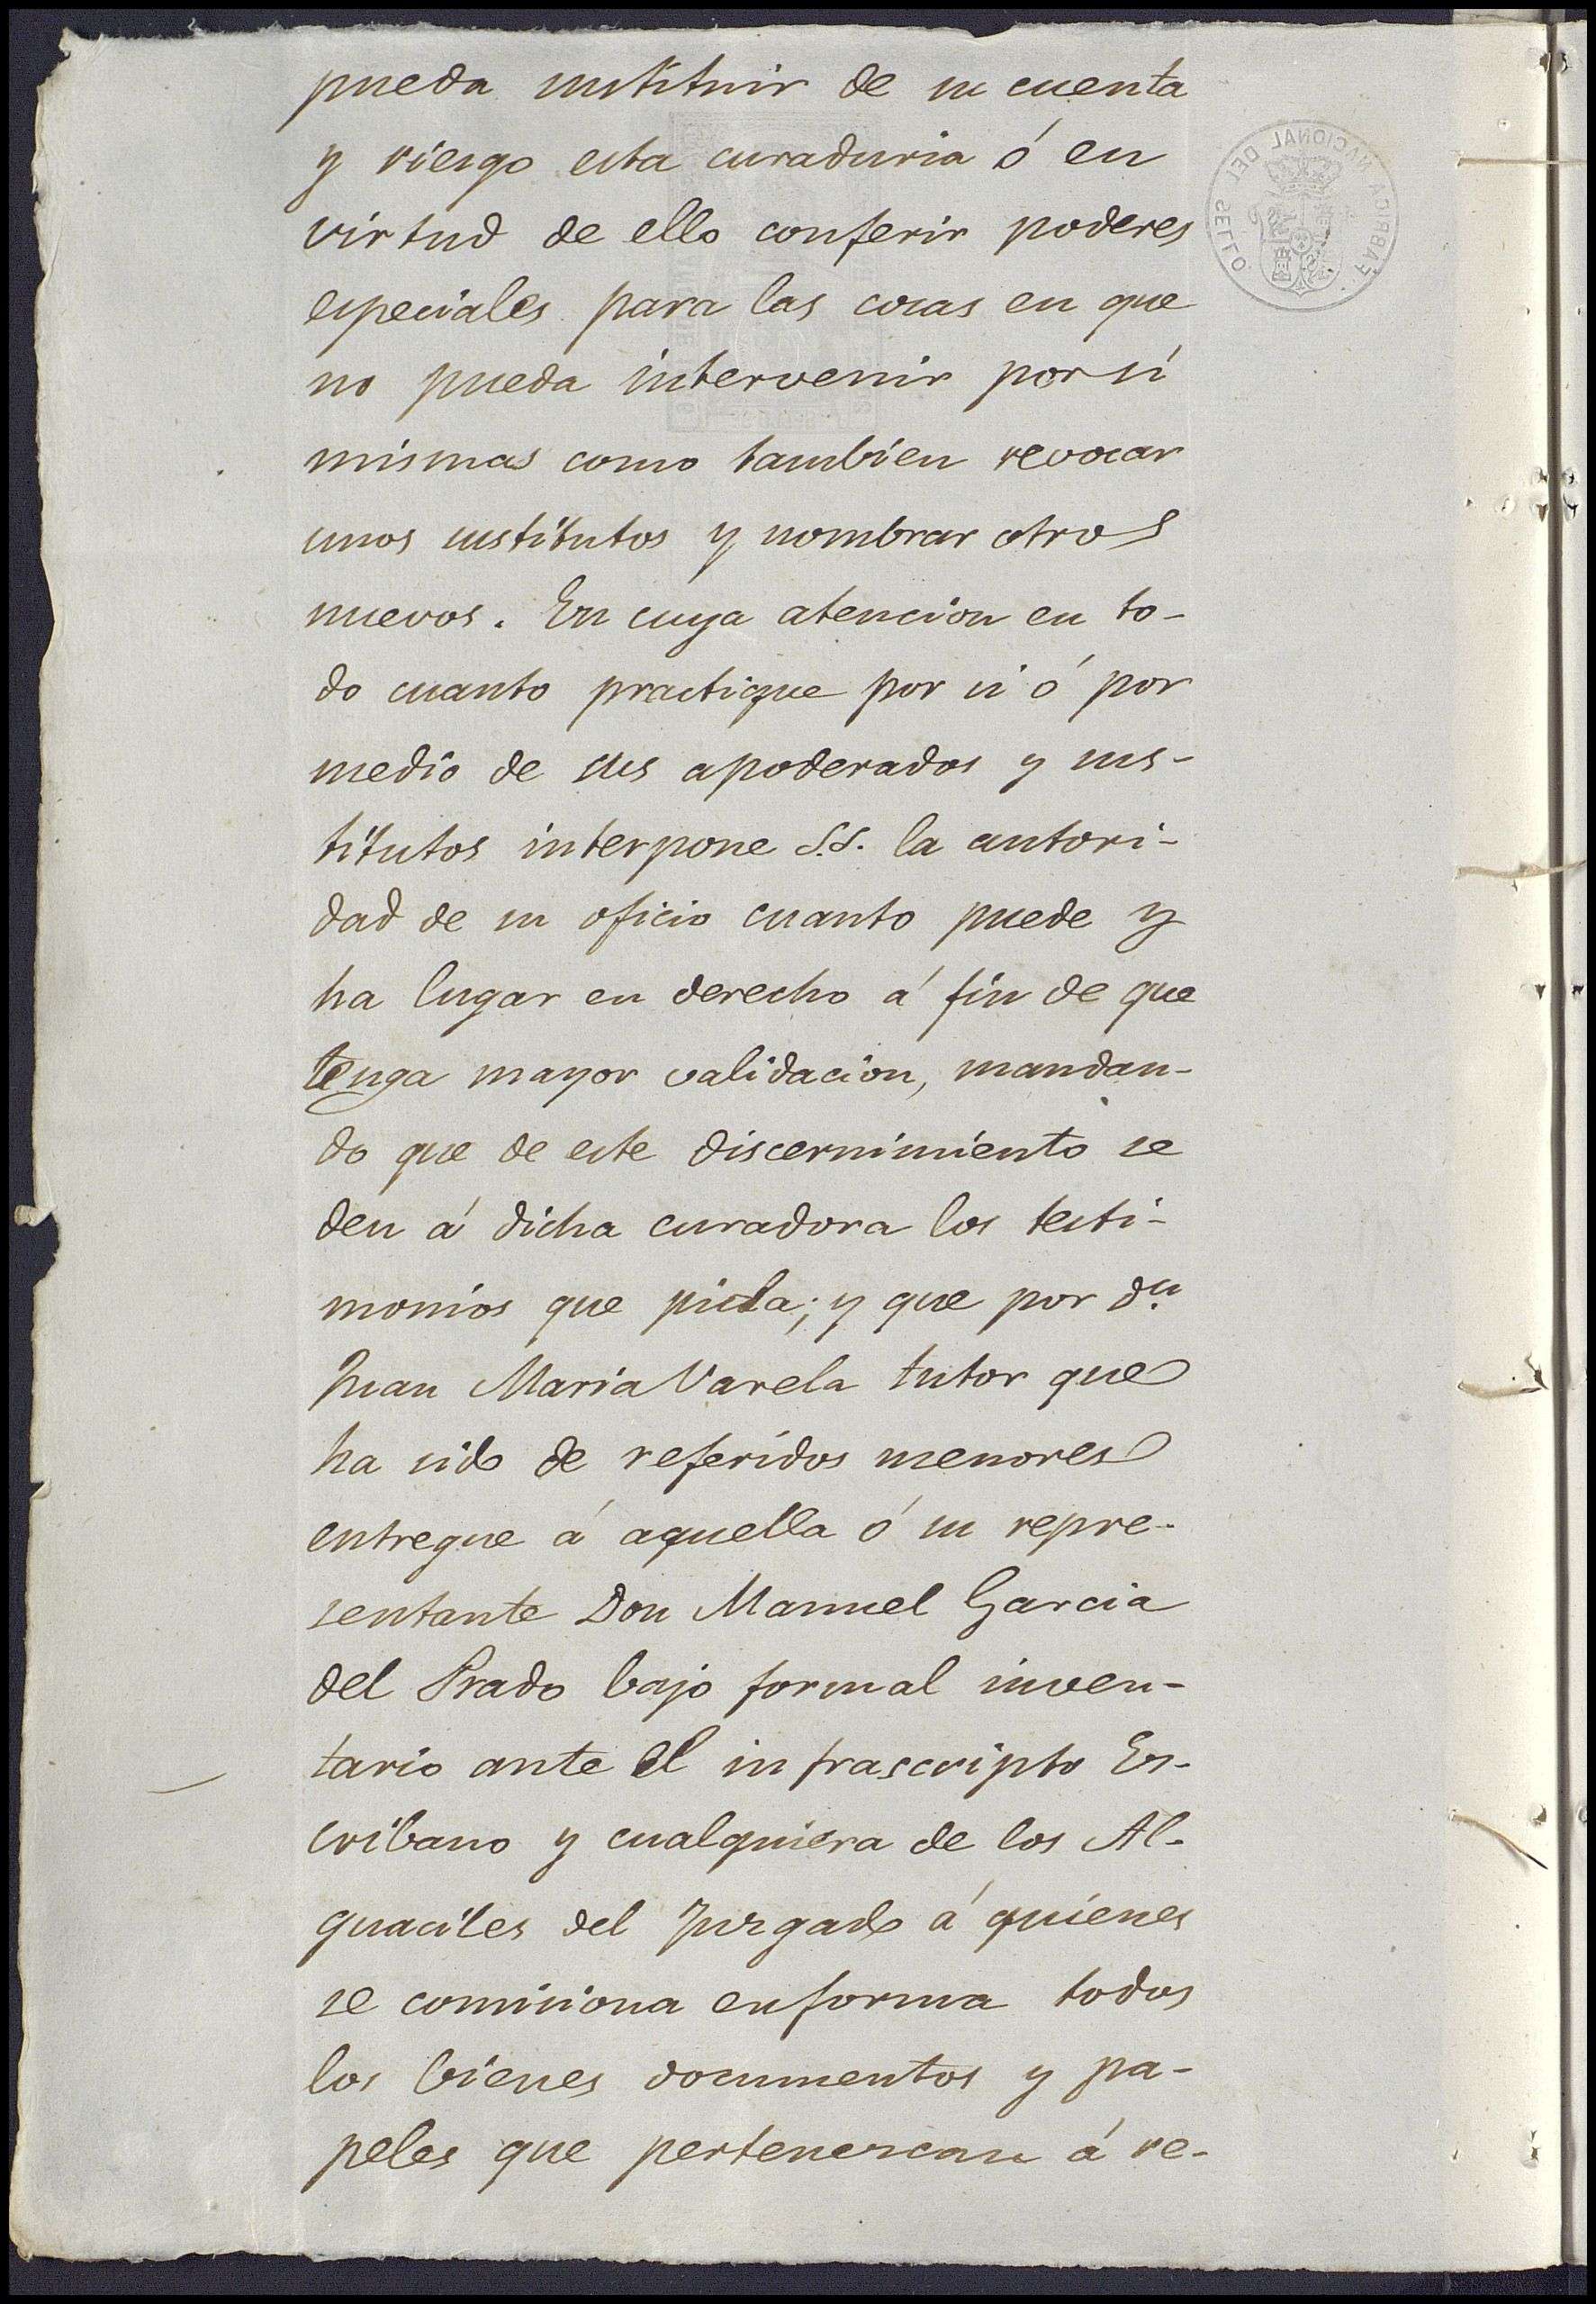 pueda sustituir de su cuenta
y riesgo esta curaduria ó en
virtud de ello conferir poderes
especiales para las cosas en que
no pueda intervenir por sí
mismas como tambien revocar
unos sustitutos y nombrar otros
nuevos. En cuya atencion en to-
do cuanto practique por si ó por
medio de sus apoderados y sus-
titutos interpone S.S. la autori-
dad de su oficio cuanto puede y
ha lugar en derecho á fin de que
tenga mayor validacion, mandan-
do que de este discernimiento se
den á dicha curadora los testi-
monios que pida; y que por dn
Juan Maria Varela tutor que
ha sido de referidos menores
entregue á aquella ó su repre-
sentante Don Manuel Garcia
del Prado bajo formal inven-
tario ante el infrascripto Es-
cribano y cualquiera de los Al-
guaciles del Juzgado á quienes
se comisiona en forma todos
los bienes documentos y pa-
peles que pertenezcan á re-
FABRICA NACIONAL DEL SELLO